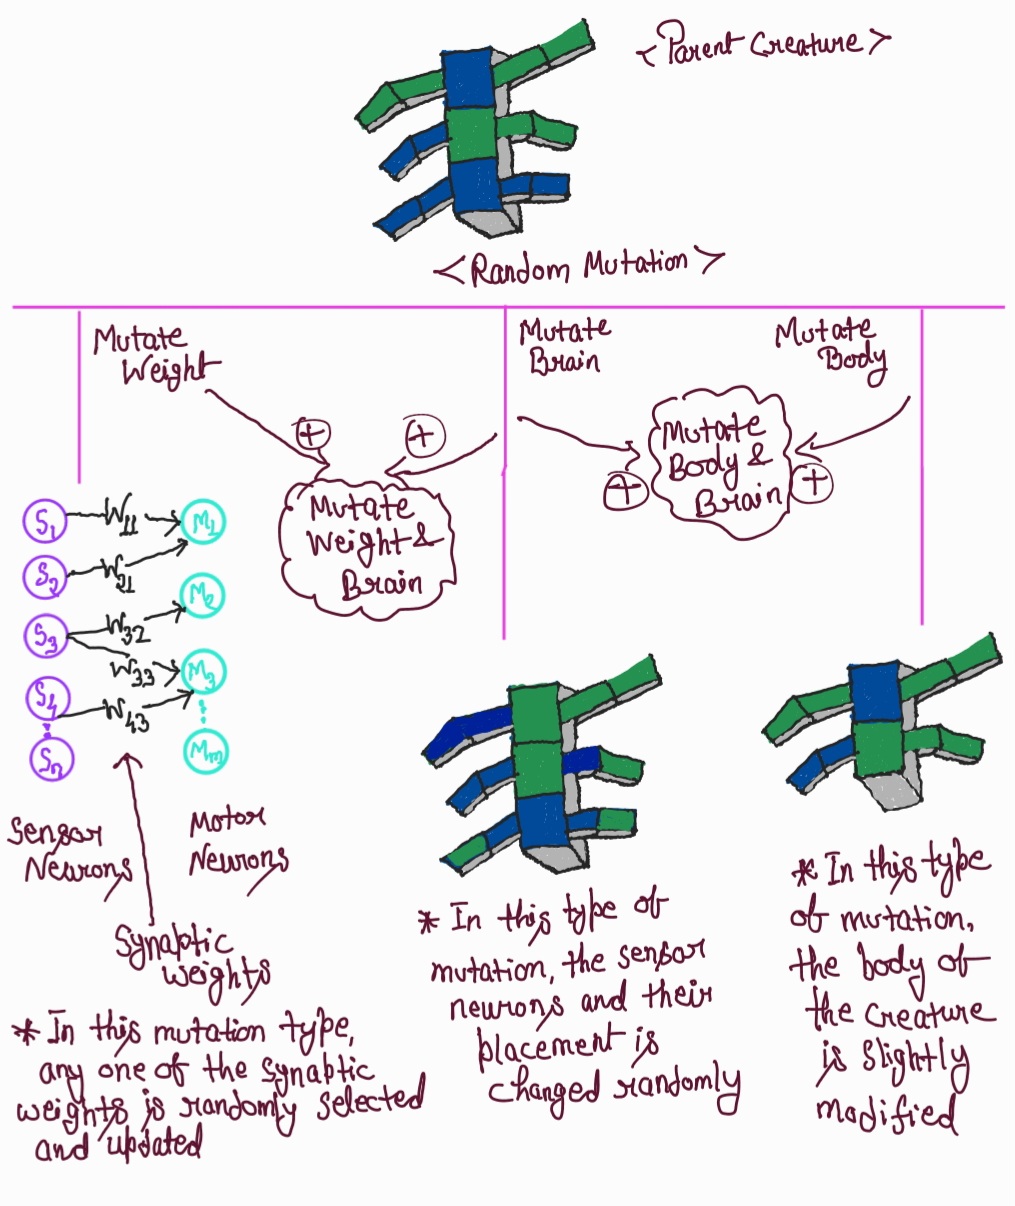 <Parent Creature>
<Random Mutation>
Mutate
Weight
Mutate
Brain
Mutate
Body
+
+
Mutate
Weight &
Brain
Mutate
Body &
Brain
+
+
S1 W11 M1
S2 W21
M2
S3 W32
W33 M3
S4 W43
Sn Mm
Sensor
Neurons
Motor
Neurons
Synaptic
weights
* In this mutation type,
any one of the synaptic
weights is randomly selected
and updated
* In this type of
mutation, the sensor
neurons and their
placement is
changed randomly
* In this type
of mutation,
the body of
the creature
is slightly
modified